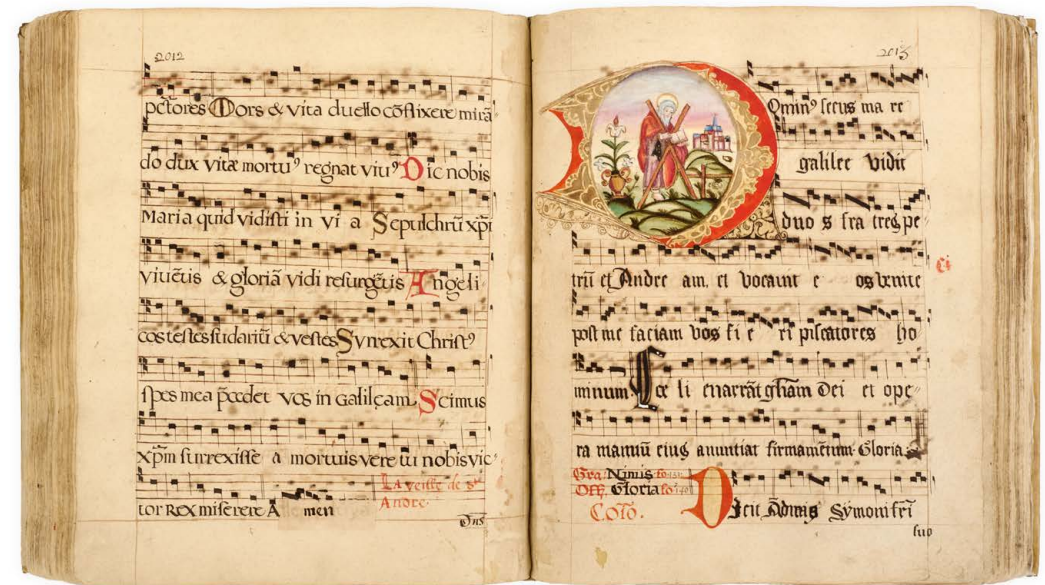 2012
pctores Mors & vita duello cõflixere mirã
do dux vitæ mortuꝰ regnat viuꝰ Dic nobis
Maria quid vidisti in vi a Sepulchrũ xpi
viuẽtis & gloriã vidi resurgẽtis Angeli
cos testes sudariũ & vestes Surrexit Christꝰ
spes mea p̃cedet vos in Galilęam Scimus
xp̃m surrexisse a mortuis vere tu nobis vic
tor Rex miserere A men
La veille de st
Andre.
Dns
2013
Dominꝰ secus ma re
galilee vidit
duo s fra tres pe
trũ et Andre am. et vocauit e os venite
post me faciam vos fi e ri piscatores ho
minum Ce li enarrãt gl̃iam Dei et ope
ra manuũ eius anuntiat firmamẽtum Gloria.
Gra. Nimis fo
Off. Gloria fo
Cõo.
Dicit Andreas Symoni fr̃i
suo